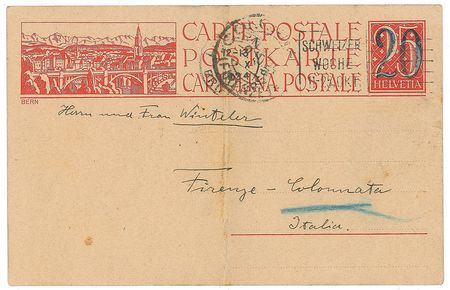 CARTE POSTALE
POSTKARTE
CARTOLINA POSTALE
SCHWEIZER
WOCHE
20
HELVETIA
BERN
Herrn und Frau Winteler
Firenze - Colonnata
Italia.